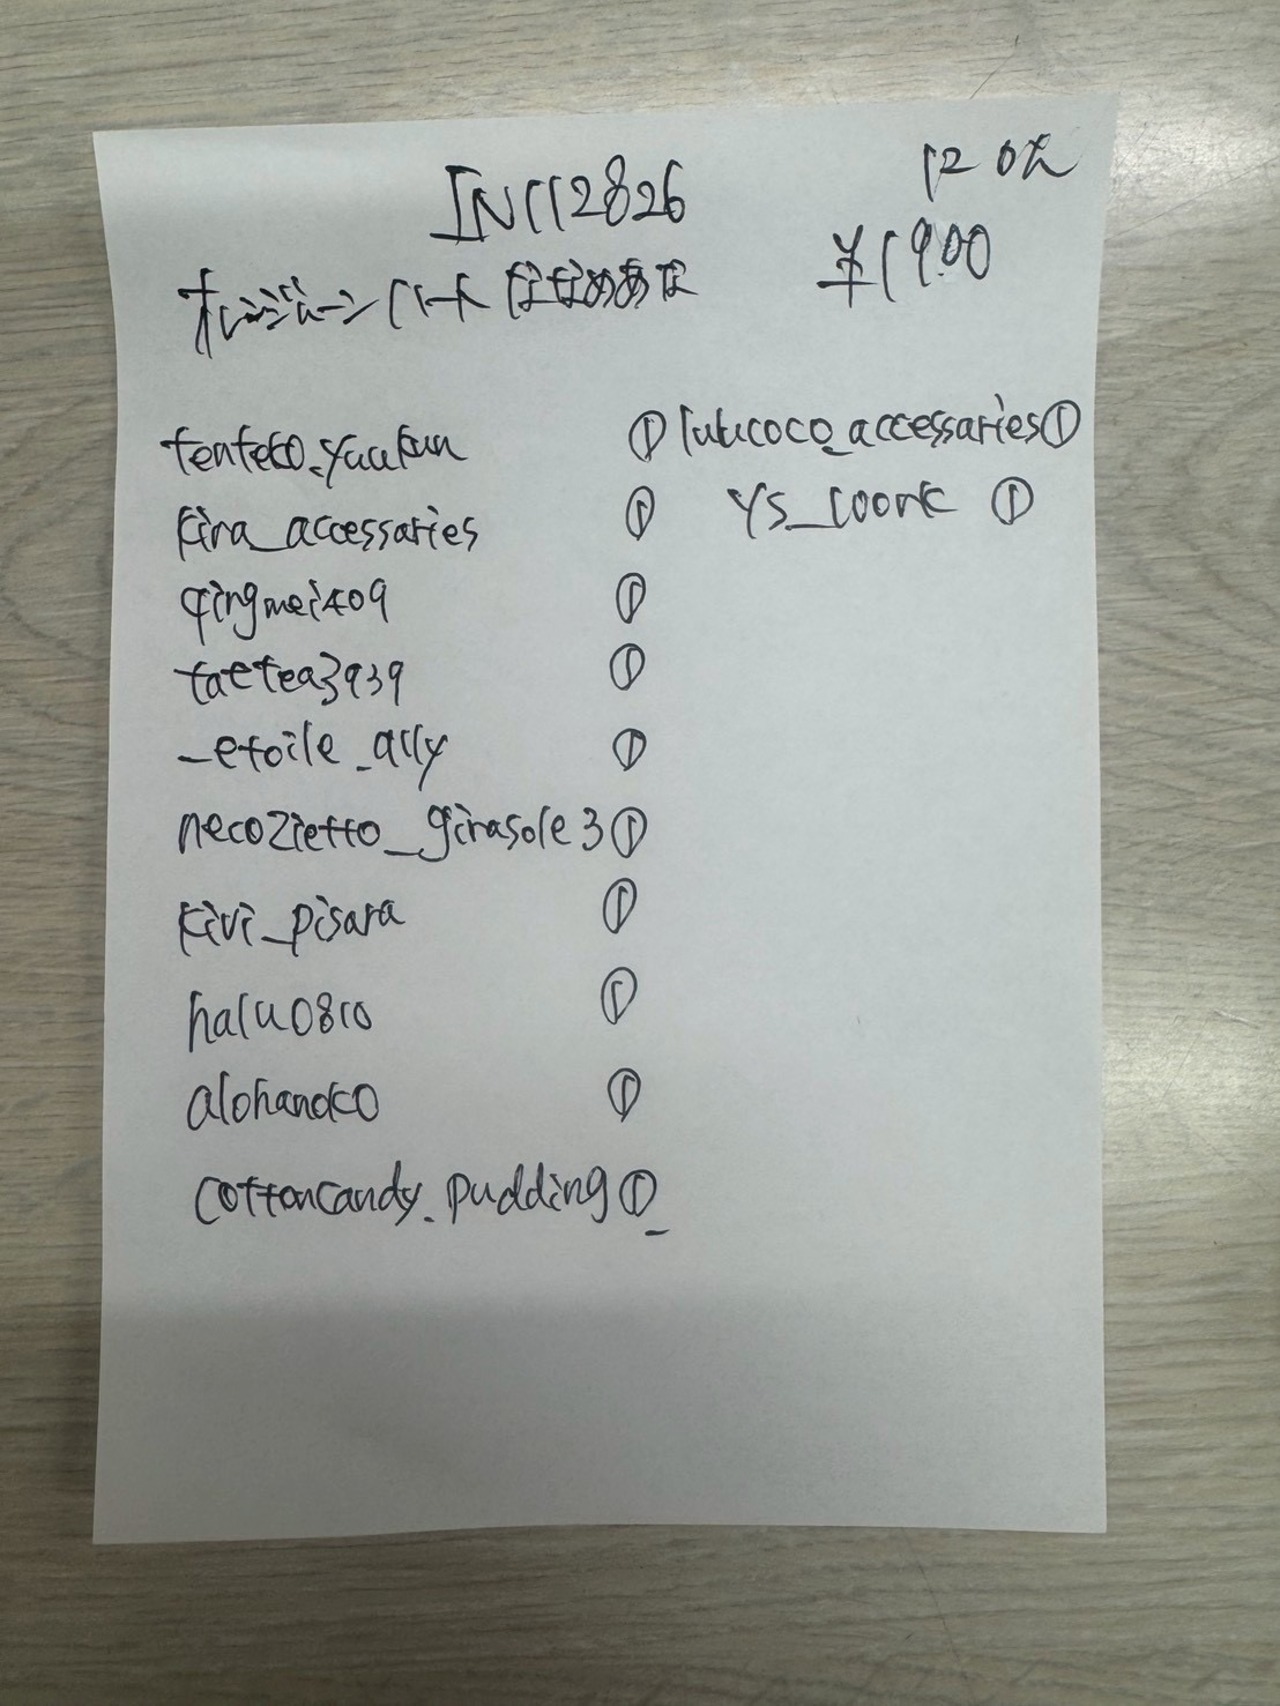 IN112826
¥1900
tenteko_yuukun ①
kira_accessaries ①
qingmei409 ①
taetea3939 ①
_etoile_ally ①
necozietto_girasole3 ①
kivi_pisara ①
halu0810 ①
alohanoko ①
cottoncandy.pudding ①
lulucoco_accessaries ①
ys_ ①